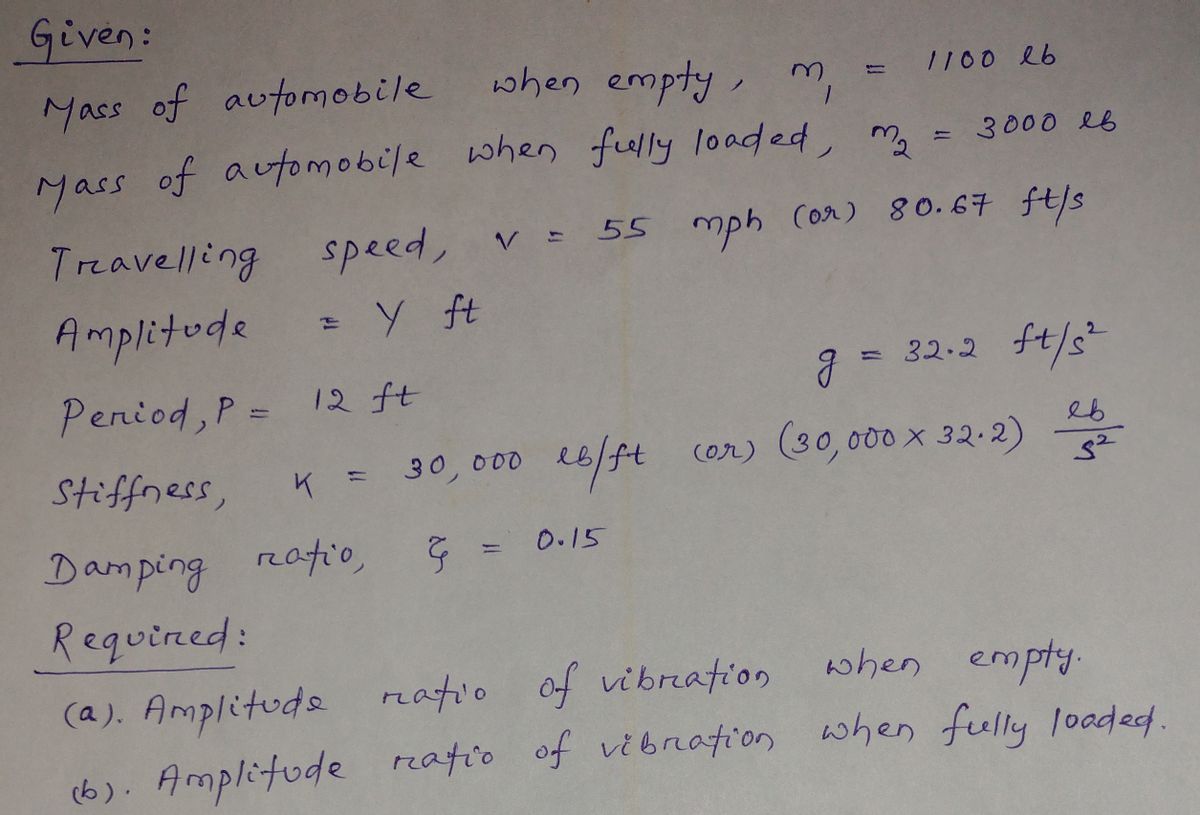 Given:
Mass of automobile when empty, m₁ = 1100 lb
Mass of automobile when fully loaded, m₂ = 3000 lb
Travelling speed, v = 55 mph (or) 80.67 ft/s
Amplitude = Y ft
g = 32.2 ft/s²
Period, P = 12 ft
Stiffness, K = 30,000 lb/ft (or) (30,000 x 32.2) lb/s²
Damping ratio, ξ = 0.15
Required:
(a). Amplitude ratio of vibration when empty.
(b). Amplitude ratio of vibration when fully loaded.